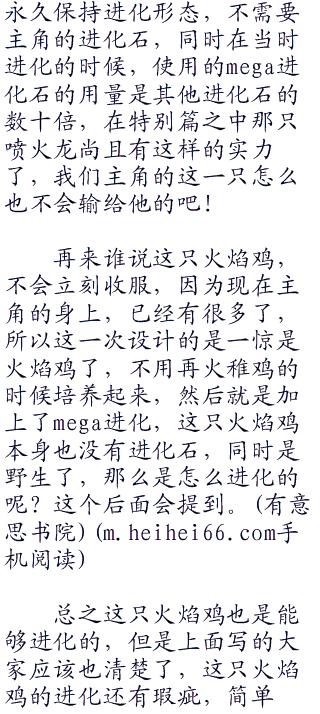 永久保持进化形态，不需要
主角的进化石，同时在当时
进化的时候，使用的mega进
化石的用量是其他进化石的
数十倍，在特别篇之中那只
喷火龙尚且有这样的实力
了，我们主角的这一只怎么
也不会输给他的吧！
再来谁说这只火焰鸡，
不会立刻收服，因为现在主
角的身上，已经有很多了，
所以这一次设计的是一惊是
火焰鸡了，不用再火稚鸡的
时候培养起来，然后就是加
上了mega进化，这只火焰鸡
本身也没有进化石，同时是
野生了，那么是怎么进化的
呢？这个后面会提到。(有意
思书院)(m.heihei66.com手
机阅读)
总之这只火焰鸡也是能
够进化的，但是上面写的大
家应该也清楚了，这只火焰
鸡的进化还有瑕疵，简单